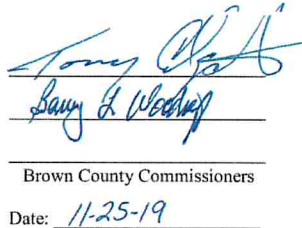 Tony
Barry L Woodruff
Brown County Commissioners
Date: 11-25-19